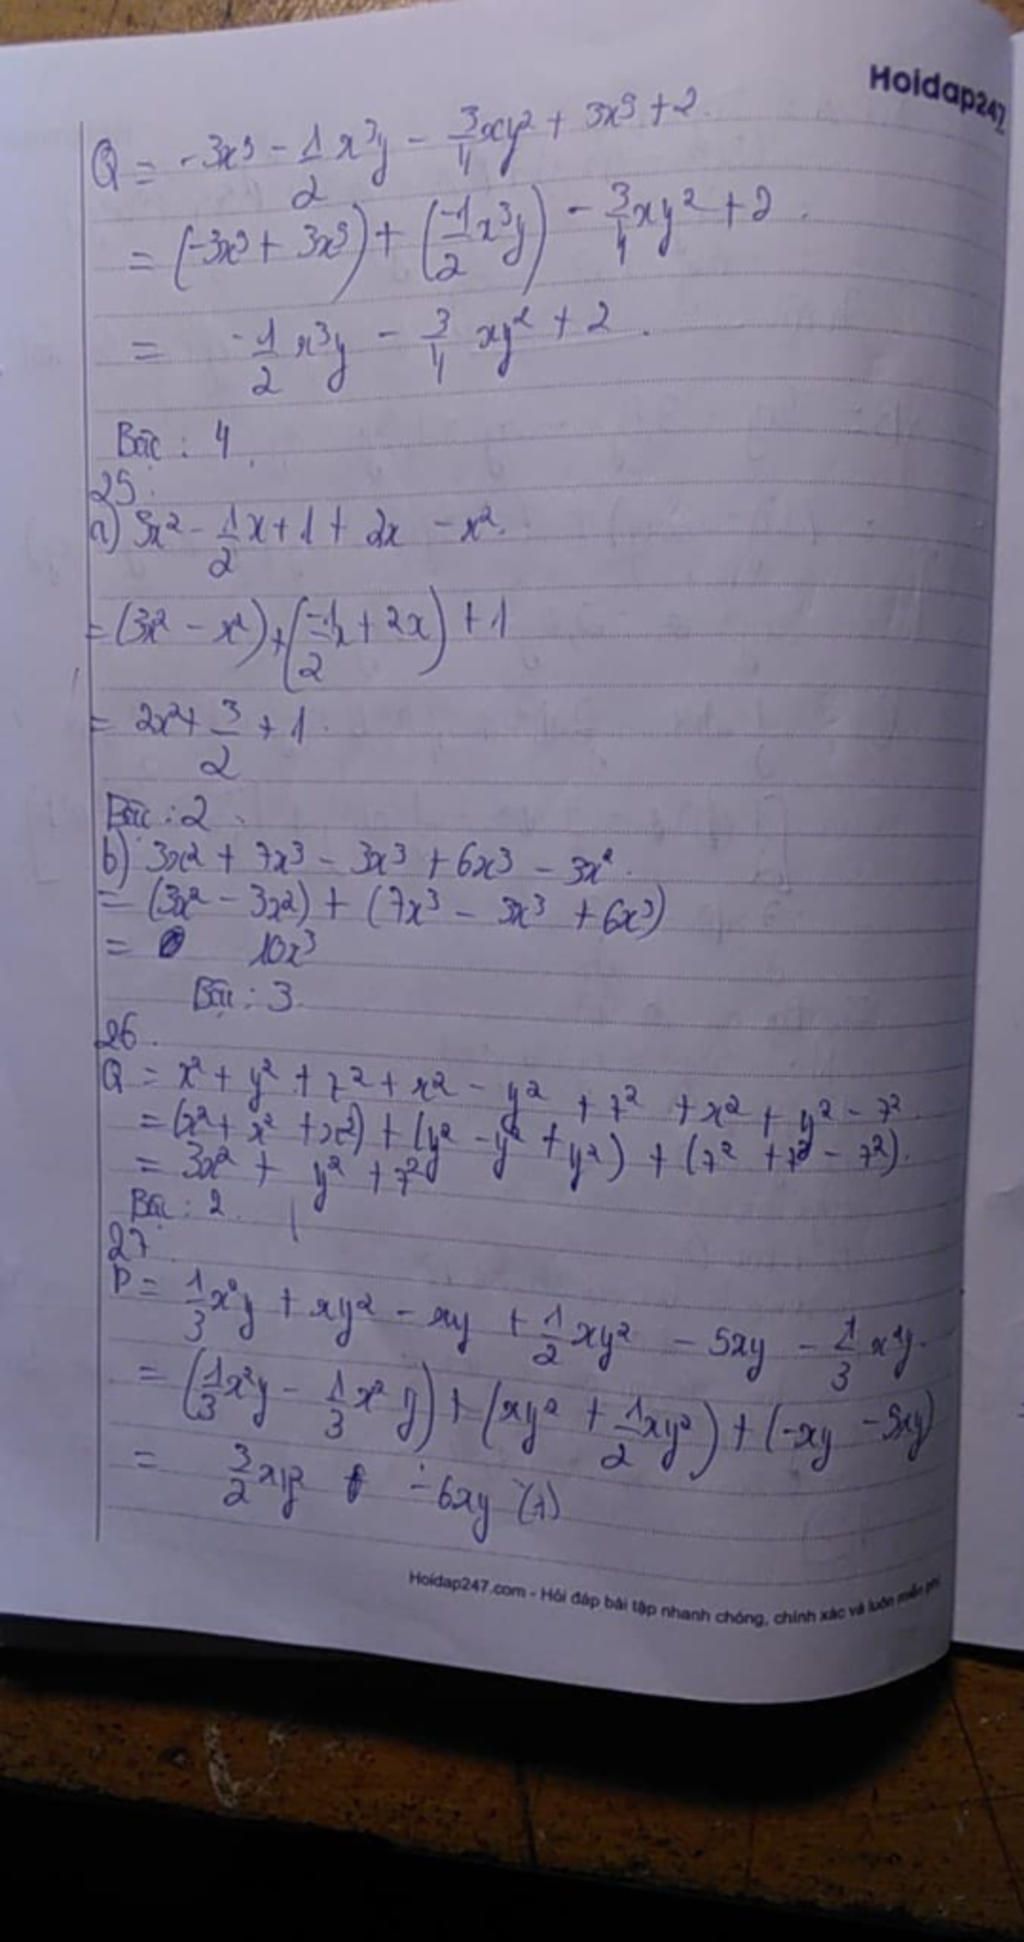 Hoidap247
Q = -3x⁵ - 1/2 x³y - 3/4 xy² + 3x⁵ + 2.
= (-3x⁵ + 3x⁵) + (-1/2 x³y) - 3/4 xy² + 2.
= -1/2 x³y - 3/4 xy² + 2.
Bậc : 4.
25.
a) 3x² - 1/2 x + 1 + 2x - x².
= (3x² - x²) + (-1/2 x + 2x) + 1
= 2x² + 3/2 + 1.
Bậc : 2.
b) 3x² + 7x³ - 3x³ + 6x³ - 3x².
= (3x² - 3x²) + (7x³ - 3x³ + 6x³)
= 10x³
Bậc : 3.
26.
Q = x² + y² + z² + x² - y² + z² + x² + y² - z².
= (x² + x² + x²) + (y² - y² + y²) + (z² + z² - z²).
= 3x² + y² + z²
Bậc : 2.
27.
P = 1/3 x²y + xy² - xy + 1/2 xy² - 5xy - 1/3 x²y.
= (1/3 x²y - 1/3 x²y) + (xy² + 1/2 xy²) + (-xy - 5xy)
= 3/2 xy² - 6xy (1)
Hoidap247.com - Hỏi đáp bài tập nhanh chóng, chính xác và luôn miễn phí